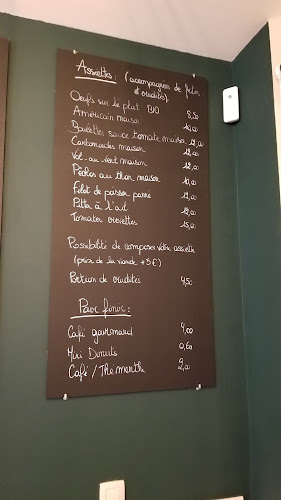 Assiettes : (accompagnées de frites
et crudités).
Oeufs sur le plat BIO 8,50
Américain maison 10,00
Boulettes sauce tomate maison 12,00
Carbonnades maison 12,00
Vol-au-vent maison 12,00
Pêches au thon maison 10,00
Filet de poisson pané 11,00
Pitta à l'ail 12,00
Tomates crevettes 15,00
Possibilité de composer votre assiette
(prix de la viande +3€)
Portion de crudités 4,50
Pour finir :
Café gourmand 7,00
Mini Donuts 0,60
Café / Thé menthe 2,00